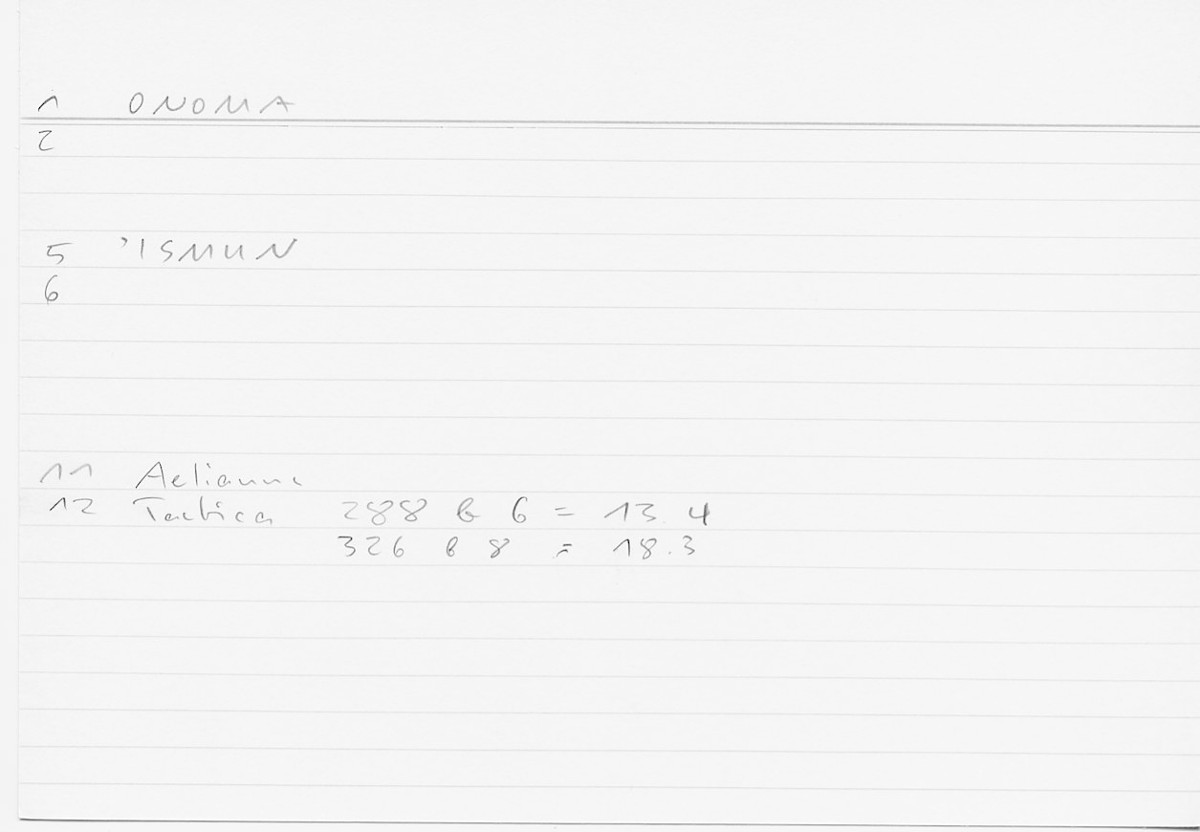 1 ONOMA
2
5 'ISMUN
6
11 Aelianus
12 Tactica 288 b 6 = 13.4
326 b 8 = 18.3